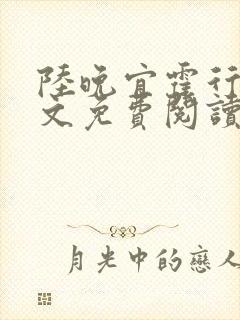 陸晚宜霍行
文免費閱讀
月光中的戀人